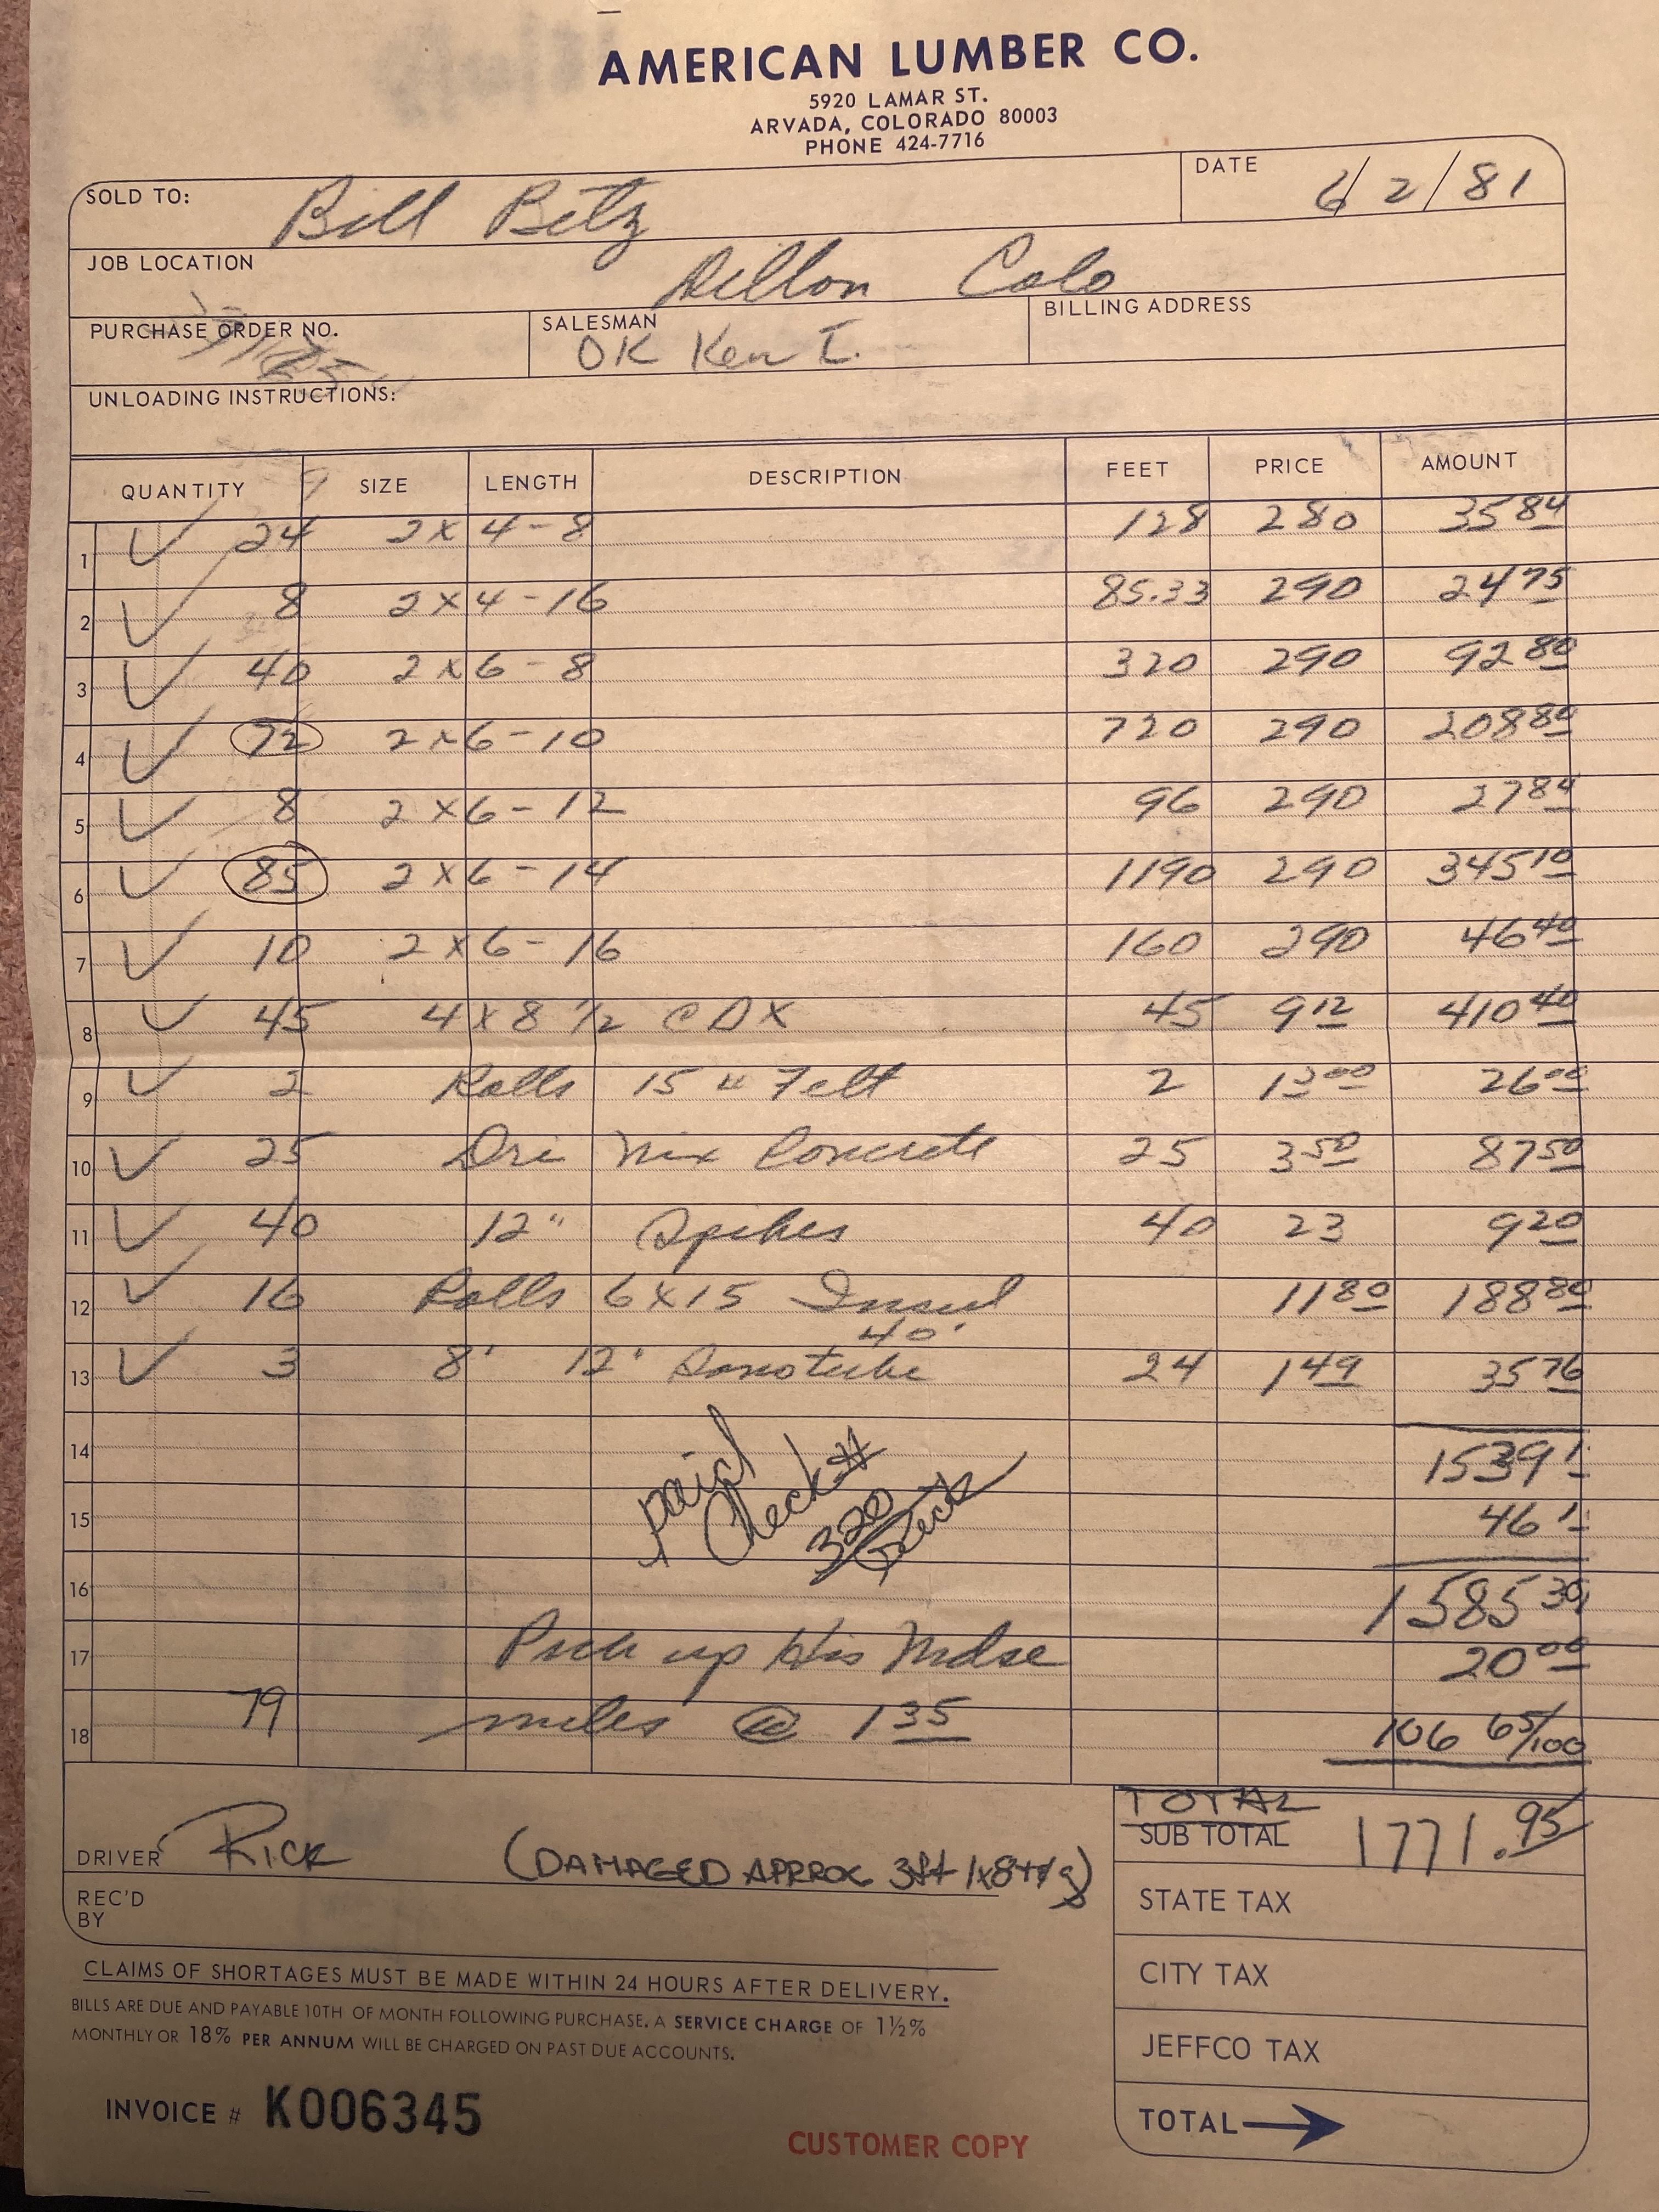 AMERICAN LUMBER CO.
5920 LAMAR ST.
ARVADA, COLORADO 80003
PHONE 424-7716
SOLD TO: Bill Betz DATE 6/2/81
JOB LOCATION Dillon Colo
PURCHASE ORDER NO. SALESMAN OK Ken I. BILLING ADDRESS
UNLOADING INSTRUCTIONS:
QUANTITY SIZE LENGTH DESCRIPTION FEET PRICE AMOUNT
1 24 2x4-8 128 280 3584
2 8 2x4-16 85.33 290 2475
3 40 2x6-8 320 290 9280
4 72 2x6-10 720 290 20880
5 8 2x6-12 96 290 2784
6 85 2x6-14 1190 290 34510
7 10 2x6-16 160 290 4640
8 45 4x8 1/2 CDX 45 912 41040
9 2 Rolls 15# Felt 2 1300 2600
10 25 Dri Mix Concrete 25 350 8750
11 40 12" Spikes 40 23 920
12 16 Rolls 6x15 Insul 1180 18880
40'
13 3 8' 12" Sonotube 24 149 3576
14 paid 1539
15 Check# 320 46
16 1585
17 Pick up His Mdse 2000
18 79 miles @ 135 106 65/100
TOTAL
SUB TOTAL 1771.95
DRIVER Rick (DAMAGED APPROX 3ft 1x8 t&g)
REC'D
BY
STATE TAX
CITY TAX
JEFFCO TAX
TOTAL
CLAIMS OF SHORTAGES MUST BE MADE WITHIN 24 HOURS AFTER DELIVERY.
BILLS ARE DUE AND PAYABLE 10TH OF MONTH FOLLOWING PURCHASE. A SERVICE CHARGE OF 1½%
MONTHLY OR 18% PER ANNUM WILL BE CHARGED ON PAST DUE ACCOUNTS.
INVOICE # K006345
CUSTOMER COPY